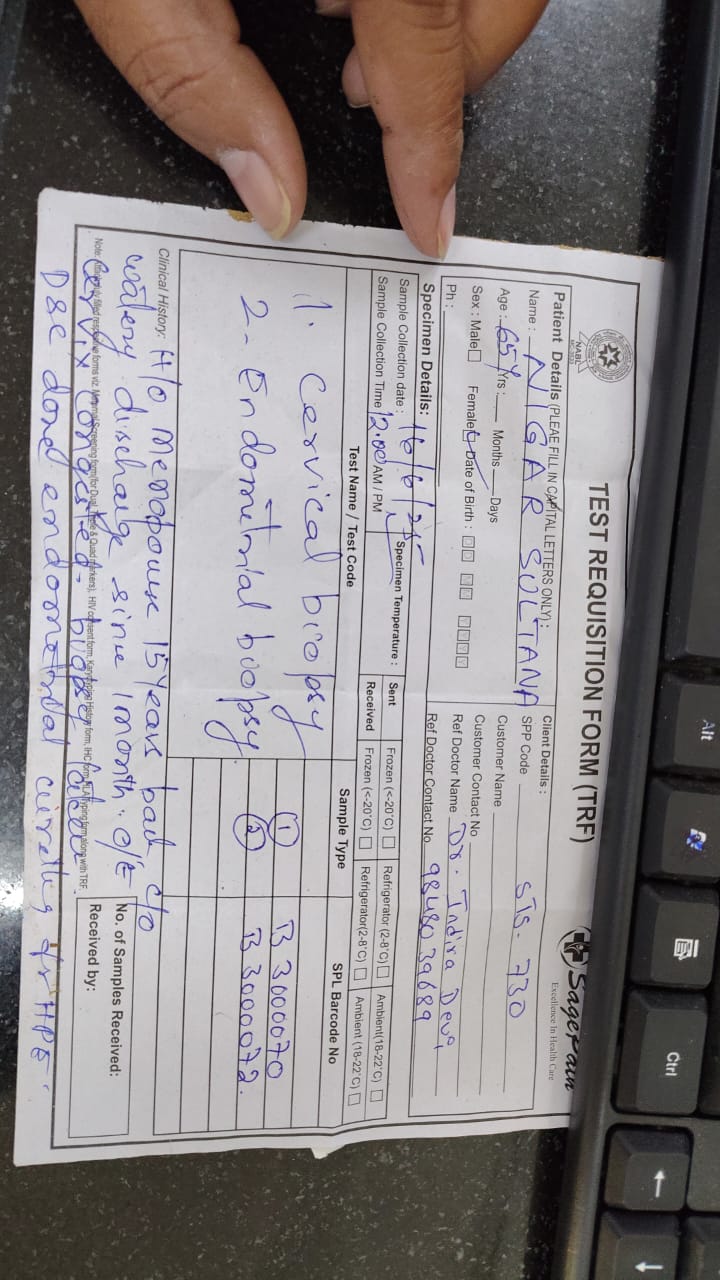 TEST REQUISITION FORM (TRF)
SagePath
Excellence In Health Care
NABL
Patient Details (PLEAE FILL IN CAPITAL LETTERS ONLY):
Name : NIGAR SULTANA
Age : 65y Yrs : Months Days
Sex : Male Female Date of Birth :
Ph :
Client Details :
SPP Code STS-730
Customer Name
Customer Contact No
Ref Doctor Name Dr. Indira Devi
Ref Doctor Contact No 9848039689
Specimen Details:
Sample Collection date : 16/6/25
Sample Collection Time 12.00 AM / PM
Specimen Temperature :
Sent Frozen (<-20°C) Refrigerator (2-8°C) Ambient(18-22°C)
Received Frozen (<-20°C) Refrigerator(2-8°C) Ambient (18-22°C)
Test Name / Test Code Sample Type SPL Barcode No
1. Cervical biopsy 1 B3000070
2- Endometrial biopsy 2 B3000072.
Clinical History: H/o Menopause 15 years back c/o
watery discharge since 1 month. O/E
No. of Samples Received:
Note: filled respective forms viz. Maternal Screening form (for Dual, Triple & Quad markers), HIV consent form, Karyotyping History form, IHC form, HLA Typing form along with TRF.
Cervix Congested- biopsy taken
Received by:
D&C done endometrial curetting for HPE.
Alt
Ctrl